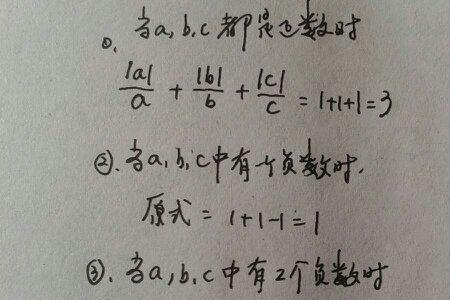 ①. 当a,b,c都是正数时
|a|/a + |b|/b + |c|/c = 1+1+1=3
②. 当a,b,c中有一个负数时.
原式 = 1+1-1=1
③. 当a,b,c中有2个负数时